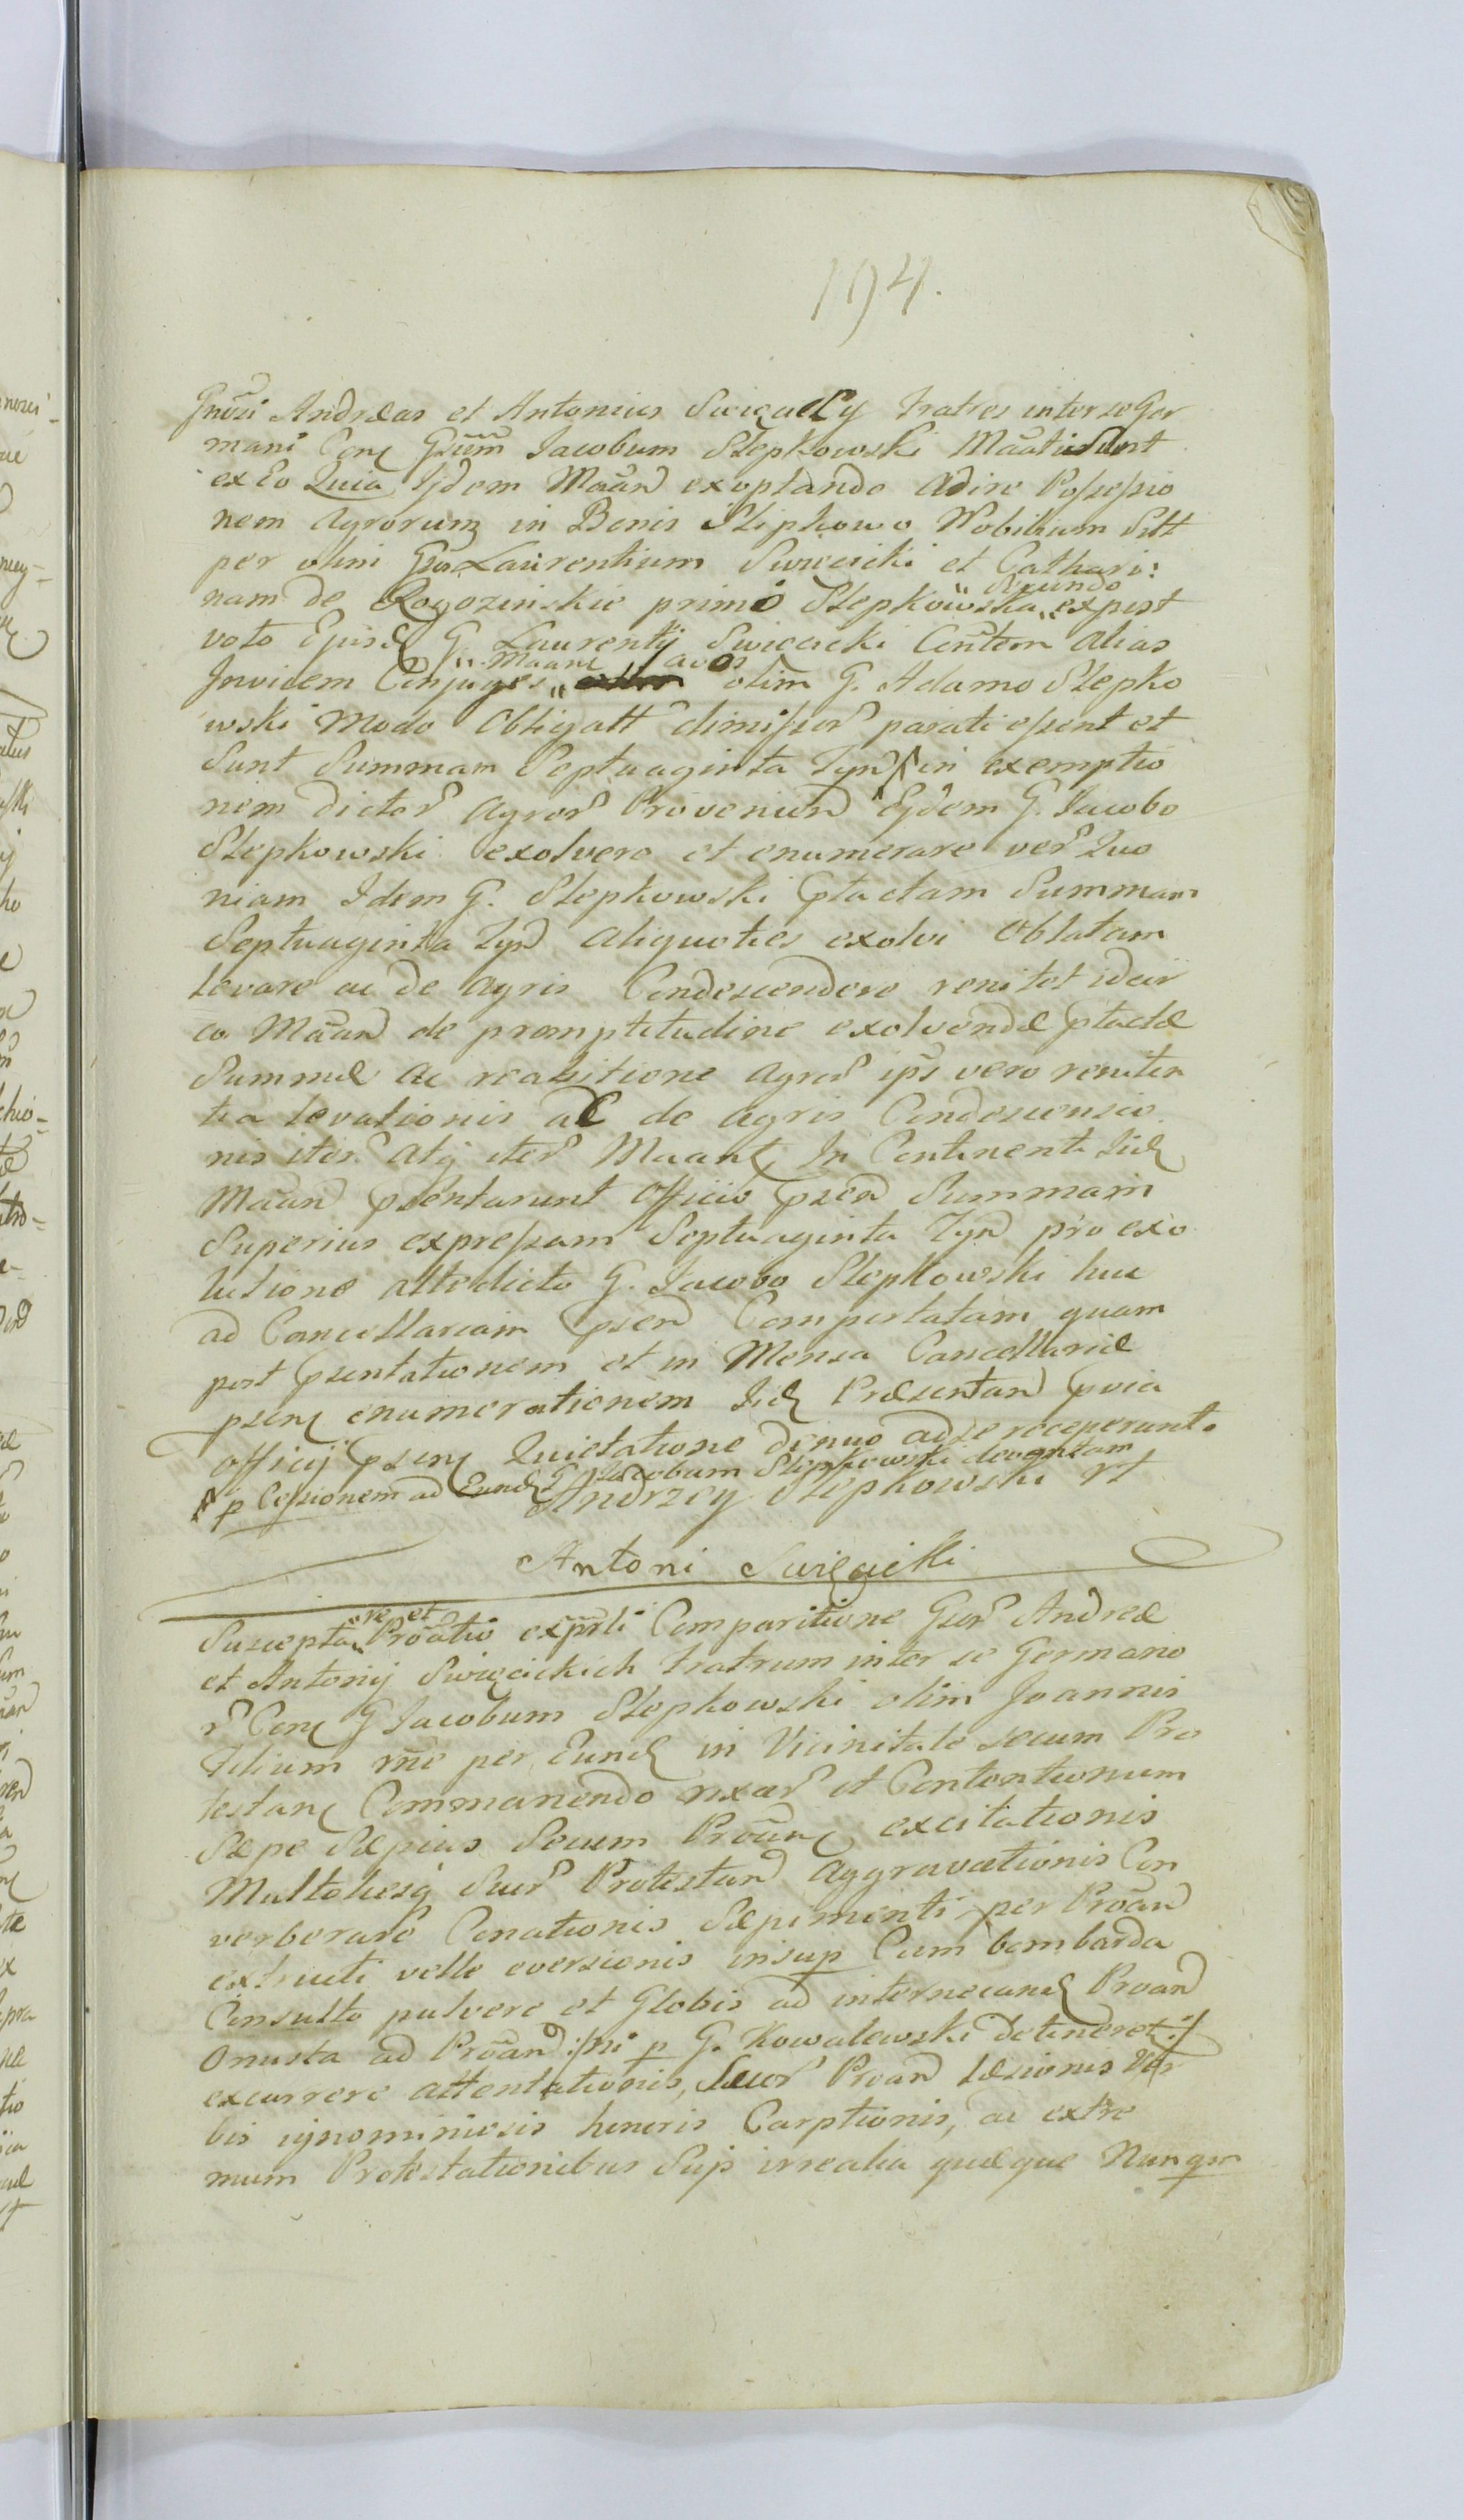 194.
Gnosi Andreas et Antonius Swięciccy Fratres inter se Ger
mani Cont Gsum Jacobum Slepkowski Maãti sunt
ex Eo Quia Ijdem Maãn exoptando adire Possessio
nem Agrorum in Bonis Slipkowo Nobilium Sitt
per olim Gsos Laurentium Swięcicki et Cathari:
nam de Rogozinskie primo Slepkowska „ Secundo „ expost
voto Ejusd G. Laurentij Swięcicki Contem alias
Invicem Conjuges „ Maant avos „ olim G. Adamo Slepko
wski Modo Obligatt dimissor parati essent et
Sunt Summam Septuaginta Tynf in exemptio
nem dictor Agror Provenien Ejdem G. Jacobo
Slepkowski exolvere et enumerare ver Quo
niam Idem G. Slepkowski ptactam Summam
Septuaginta Tyn aliquoties exolvi Oblatam
levare ac de Agris Condescendere renitet idcir
co Maan de promptitudine exolvendæ ptactæ
Summæ ac reabitione Agror ips vero reniten
tia levationis ac de agris Condescensio
nis iter. atq iter Maant In Continenti Iid
Maan psentarunt Officio psen Summam
Superius expressam Septuaginta Tyn pro exo
lutione attedicto G. Jacobo Slepkowski huc
ad Cancellariam psen Comportatam quam
post psentationem et in Mensa Cancellariæ
psent enumerationem Iid Præsentan pvia
officij psent Quietatione denuo ad se receperunt.
p Cessionem ad Eund G Jacobum Slepkowski devolutam
Andrzey Slepkowski rt
Antoni Swięcicki
Suscepta „ repet „ Proatio exprsti Comparitione Gsor Andreæ
et Antonij Swięcickich Fratrum inter se Germano
r Cont G Jacobum Slepkowski olim Joannis
Filium rne per Eund in Vicinitate secum Pro
testant Commanendo rixar et Contentionum
Sæpe Sæpius Secum Proant excitationis
Multotiesq Suor Protestan Aggravationis Con
verberare Conationis Sæpimenti per Proan
extructi velle eversionis insup Cum bombarda
Consulto pulvere et Globis ad internecand Proan
Onusta ad Proan :/ni p G. Kowalewski detineret:/
excurrere attentationis, Suor Proan Læsionis Ver
bis ignominiosis honoris Carptionis, ac extre
mum Protestationibus Sup irrealia quæque Nunqm